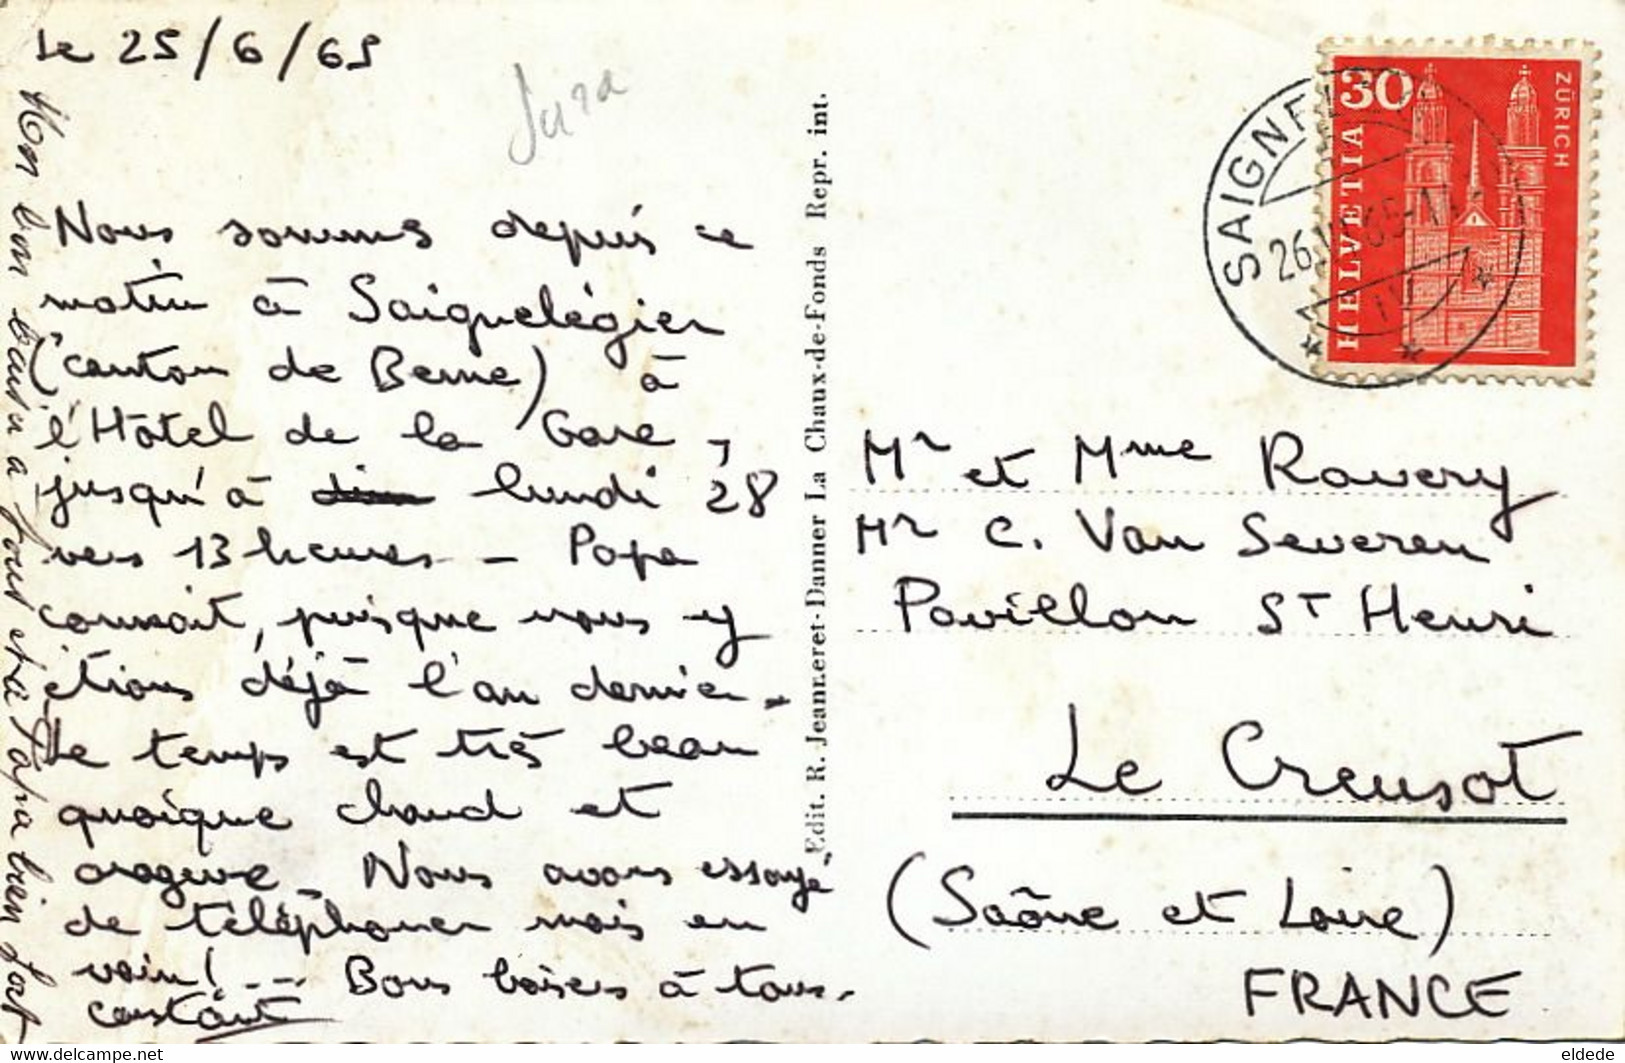 Le 25/6/65
Jura
Nous sommes depuis ce
matin à Saignelégier
(canton de Berne) à
l'Hôtel de la Gare,
jusqu'à lundi 28
vers 13 heures - Papa
connait, puisque nous y
étions déjà l'an dernier.
Le temps est très beau
quoique chaud et
orageux. Nous avons essayé
de téléphoner mais en
vain!... Bons baisers à tous.
Mon bon baiser à tous et à Papa bien fort
Edit. R. Jeanneret-Danner La Chaux-de-Fonds Repr. int.
30
HELVETIA
ZÜRICH
26.VI.65-11
Mr et Mme Ravery
Mr C. Van Severen
Pavillon St Henri
Le Creusot
(Saône et Loire)
FRANCE
https://www.delcampe.net
eldede